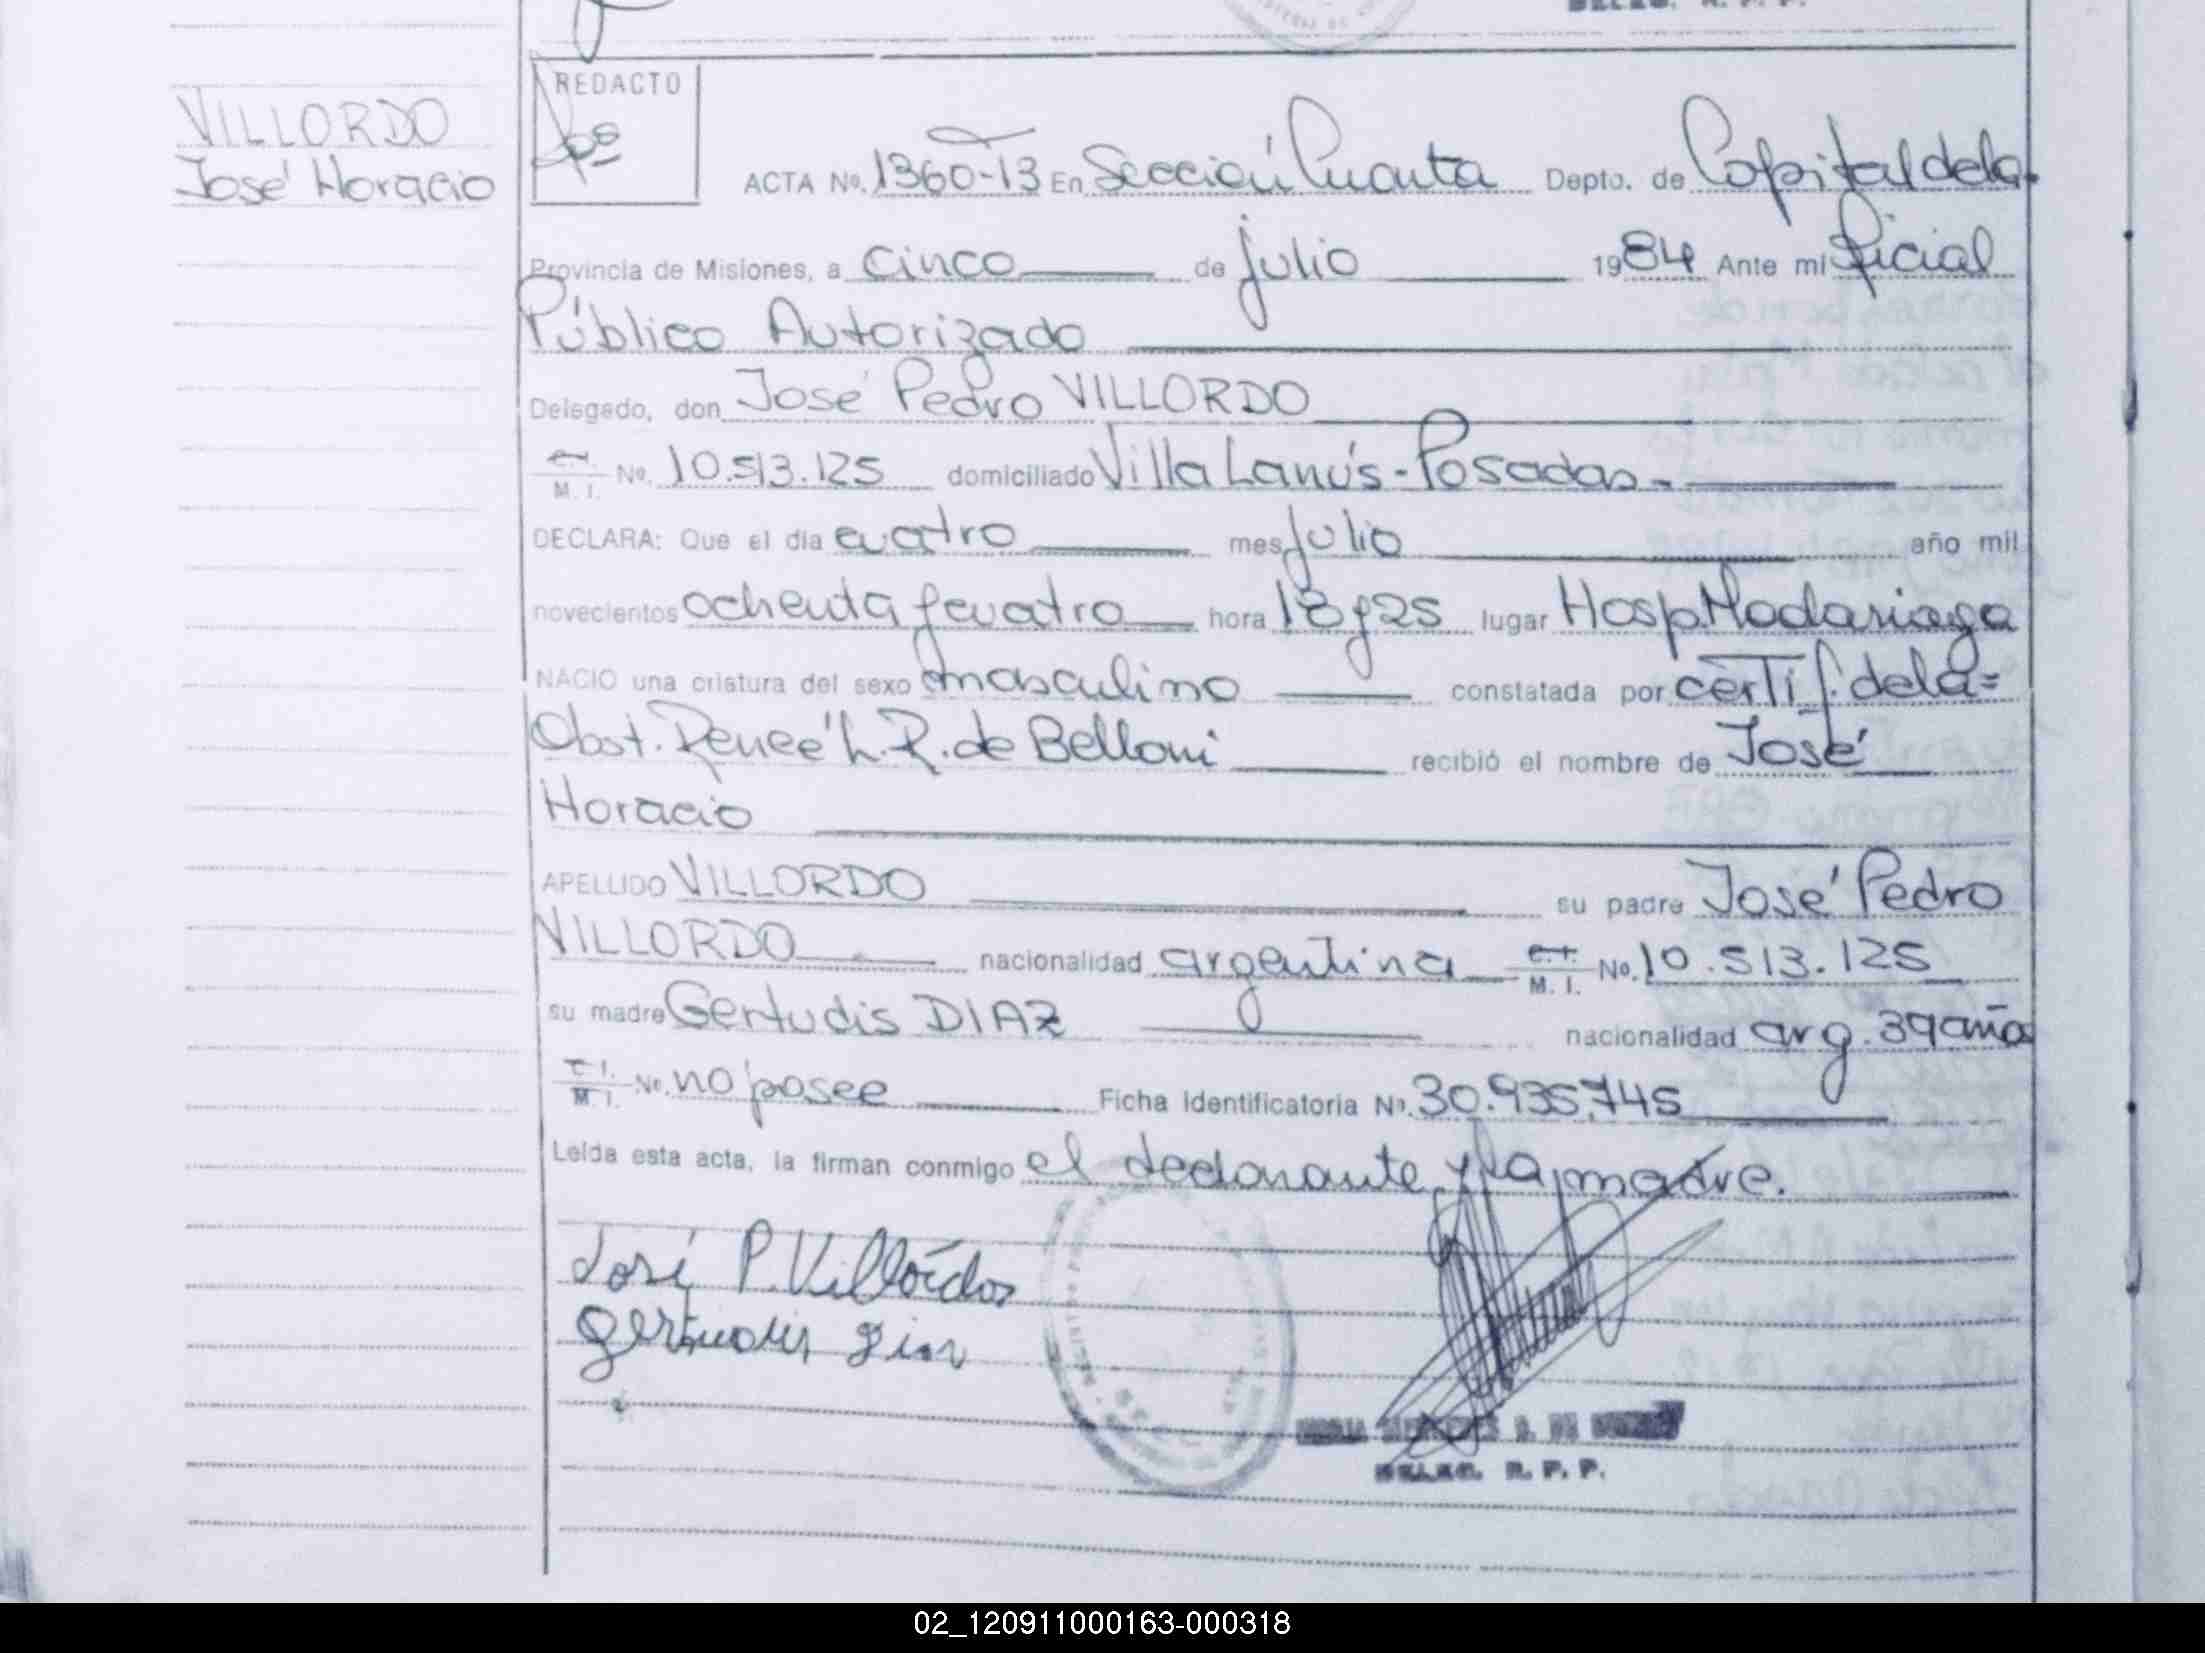 VILLORDO
José Horacio
REDACTO
ACTA No. 1360-T3 En Sección Cuarta Depto. de Capital de la
Provincia de Misiones, a cinco de julio 1984 Ante mi Oficial
Público Autorizado
Delegado, don José Pedro VILLORDO
M. I. No. 10.513.125 domiciliado Villa Lanús - Posadas -
DECLARA: Que el dia cuatro mes julio año mil
novecientos ochenta y cuatro hora 18 y 25 lugar Hosp. Madariaga
NACIO una criatura del sexo masculino constatada por certif. de la =
Obst. Reneé L. R. de Belloni recibió el nombre de José
Horacio
APELLIDO VILLORDO su padre José Pedro
VILLORDO nacionalidad argentina M. I. No. 10.513.125
su madre Gertudis DIAZ nacionalidad arg. 39 años
C. I. M. I. No. no posee Ficha Identificatoria No. 30.935.745
Leída esta acta, la firman conmigo el declarante y la madre.
José P. Villordo
Gertrudis Diaz
DELEG. R. P. P.
02_120911000163-000318